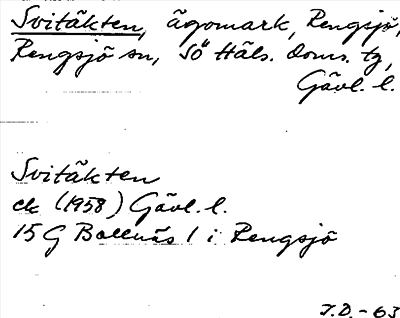 Svitäkten, ägomark, Rengsjö,
Rengsjö sn, Sö Häls. doms. tg,
Gävl. l.
Svitäkten
ek (1958) Gävl. l.
15 G Bollnäs 1 i Rengsjö
J.D. - 63